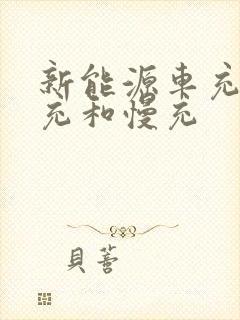 新能源车充
充和慢充
貝薈